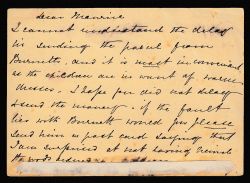 Dear Maurice
I cannot understand the delay
in sending the parcel from
Burnett, and it is most inconvenient
as the children are in want of warm
dresses. I hope you did not delay
send the money. if the fault
lies with Burnett would you please
send him a post card saying that
I am surprised at not having
the